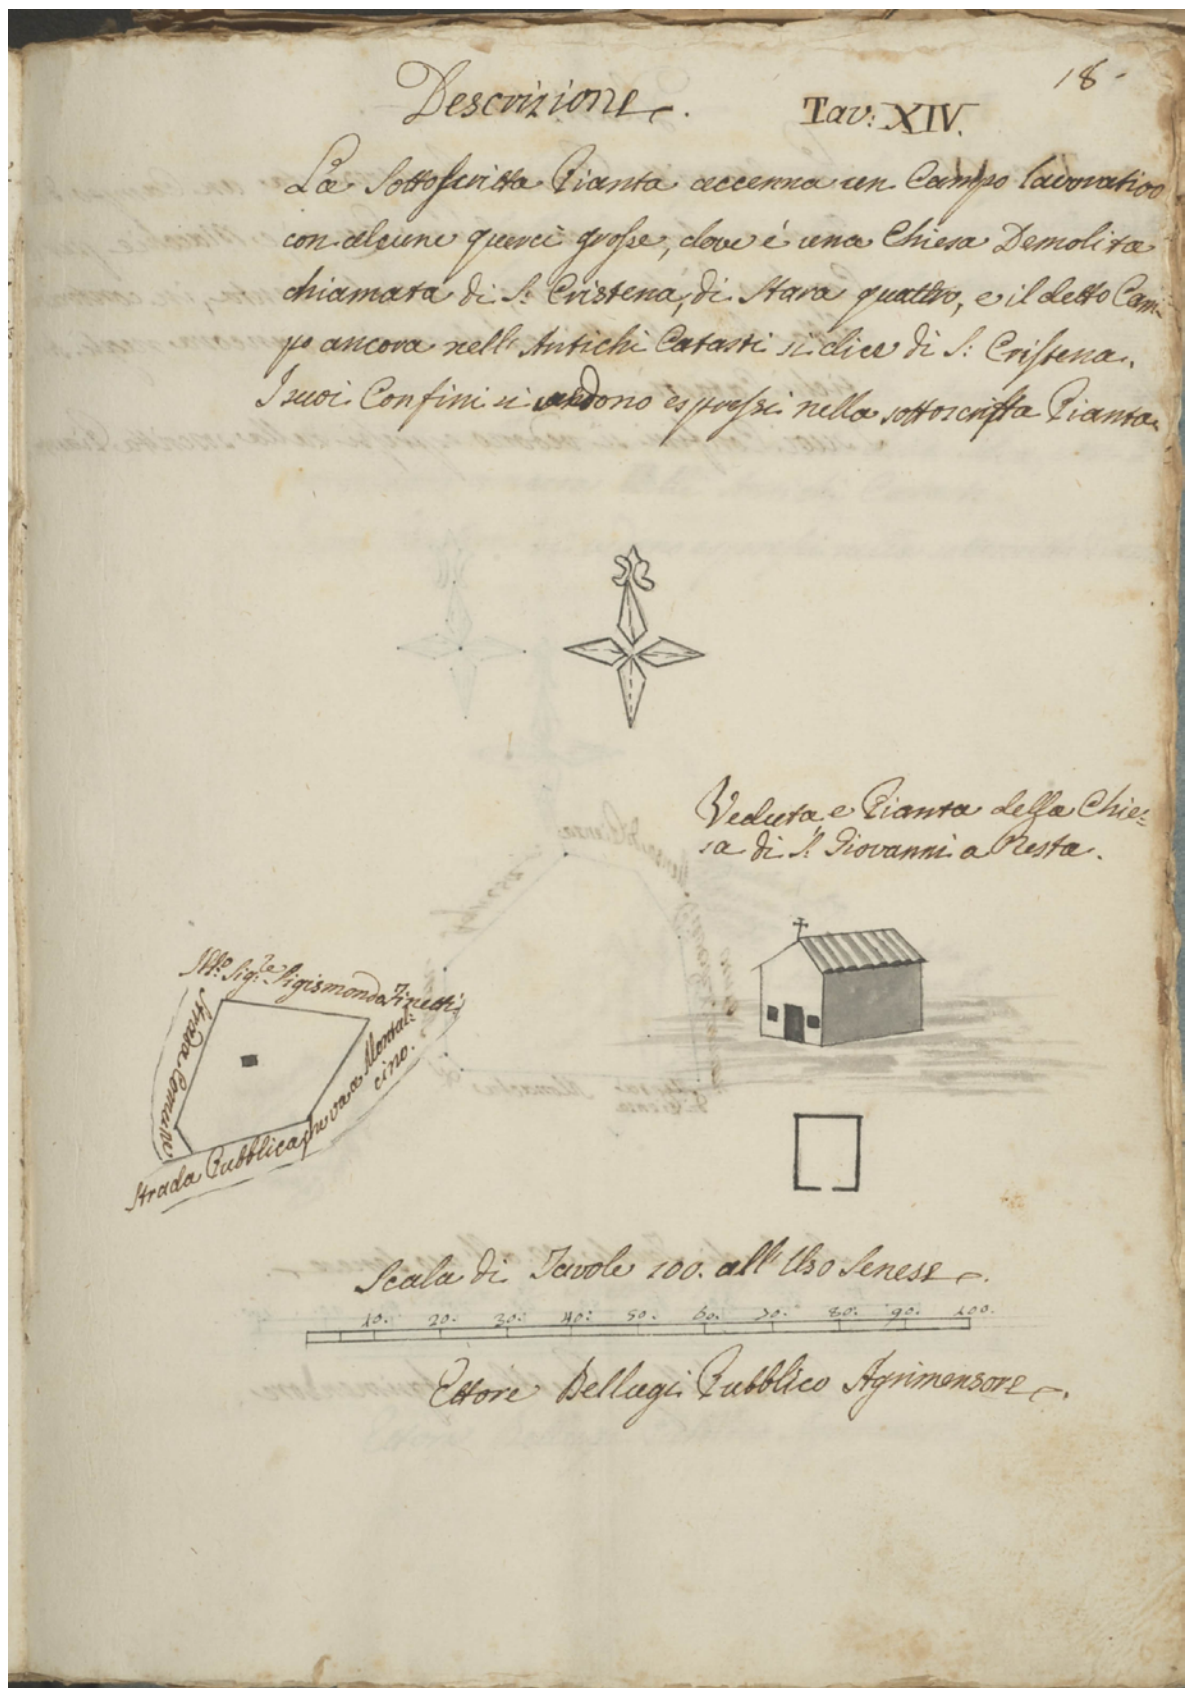 18
Descrizione.
Tav: XIV.
La Sottoscritta Pianta accenna un Campo lavorativo
con alcune querci grosse, dove è una Chiesa Demolita
chiamata di S: Cristena, di Stara quattro, e il detto Cam-
po ancora nell' Antichi Catasti si dice di S: Cristena.
I suoi Confini si vedono espressi nella sottoscritta Pianta.
Veduta e Pianta della Chie=
sa di S. Giovanni a Resta.
Ill:o Sig:re Sigismondo Finetti
Strada Comune
Strada Pubblica che va a Montal:
cino.
Scala di Tavole 100. all' Uso Senese.
10. 20. 30: 40: 50. 60. 70. 80. 90. 100.
Ettore Bellugi Pubblico Agrimensore.